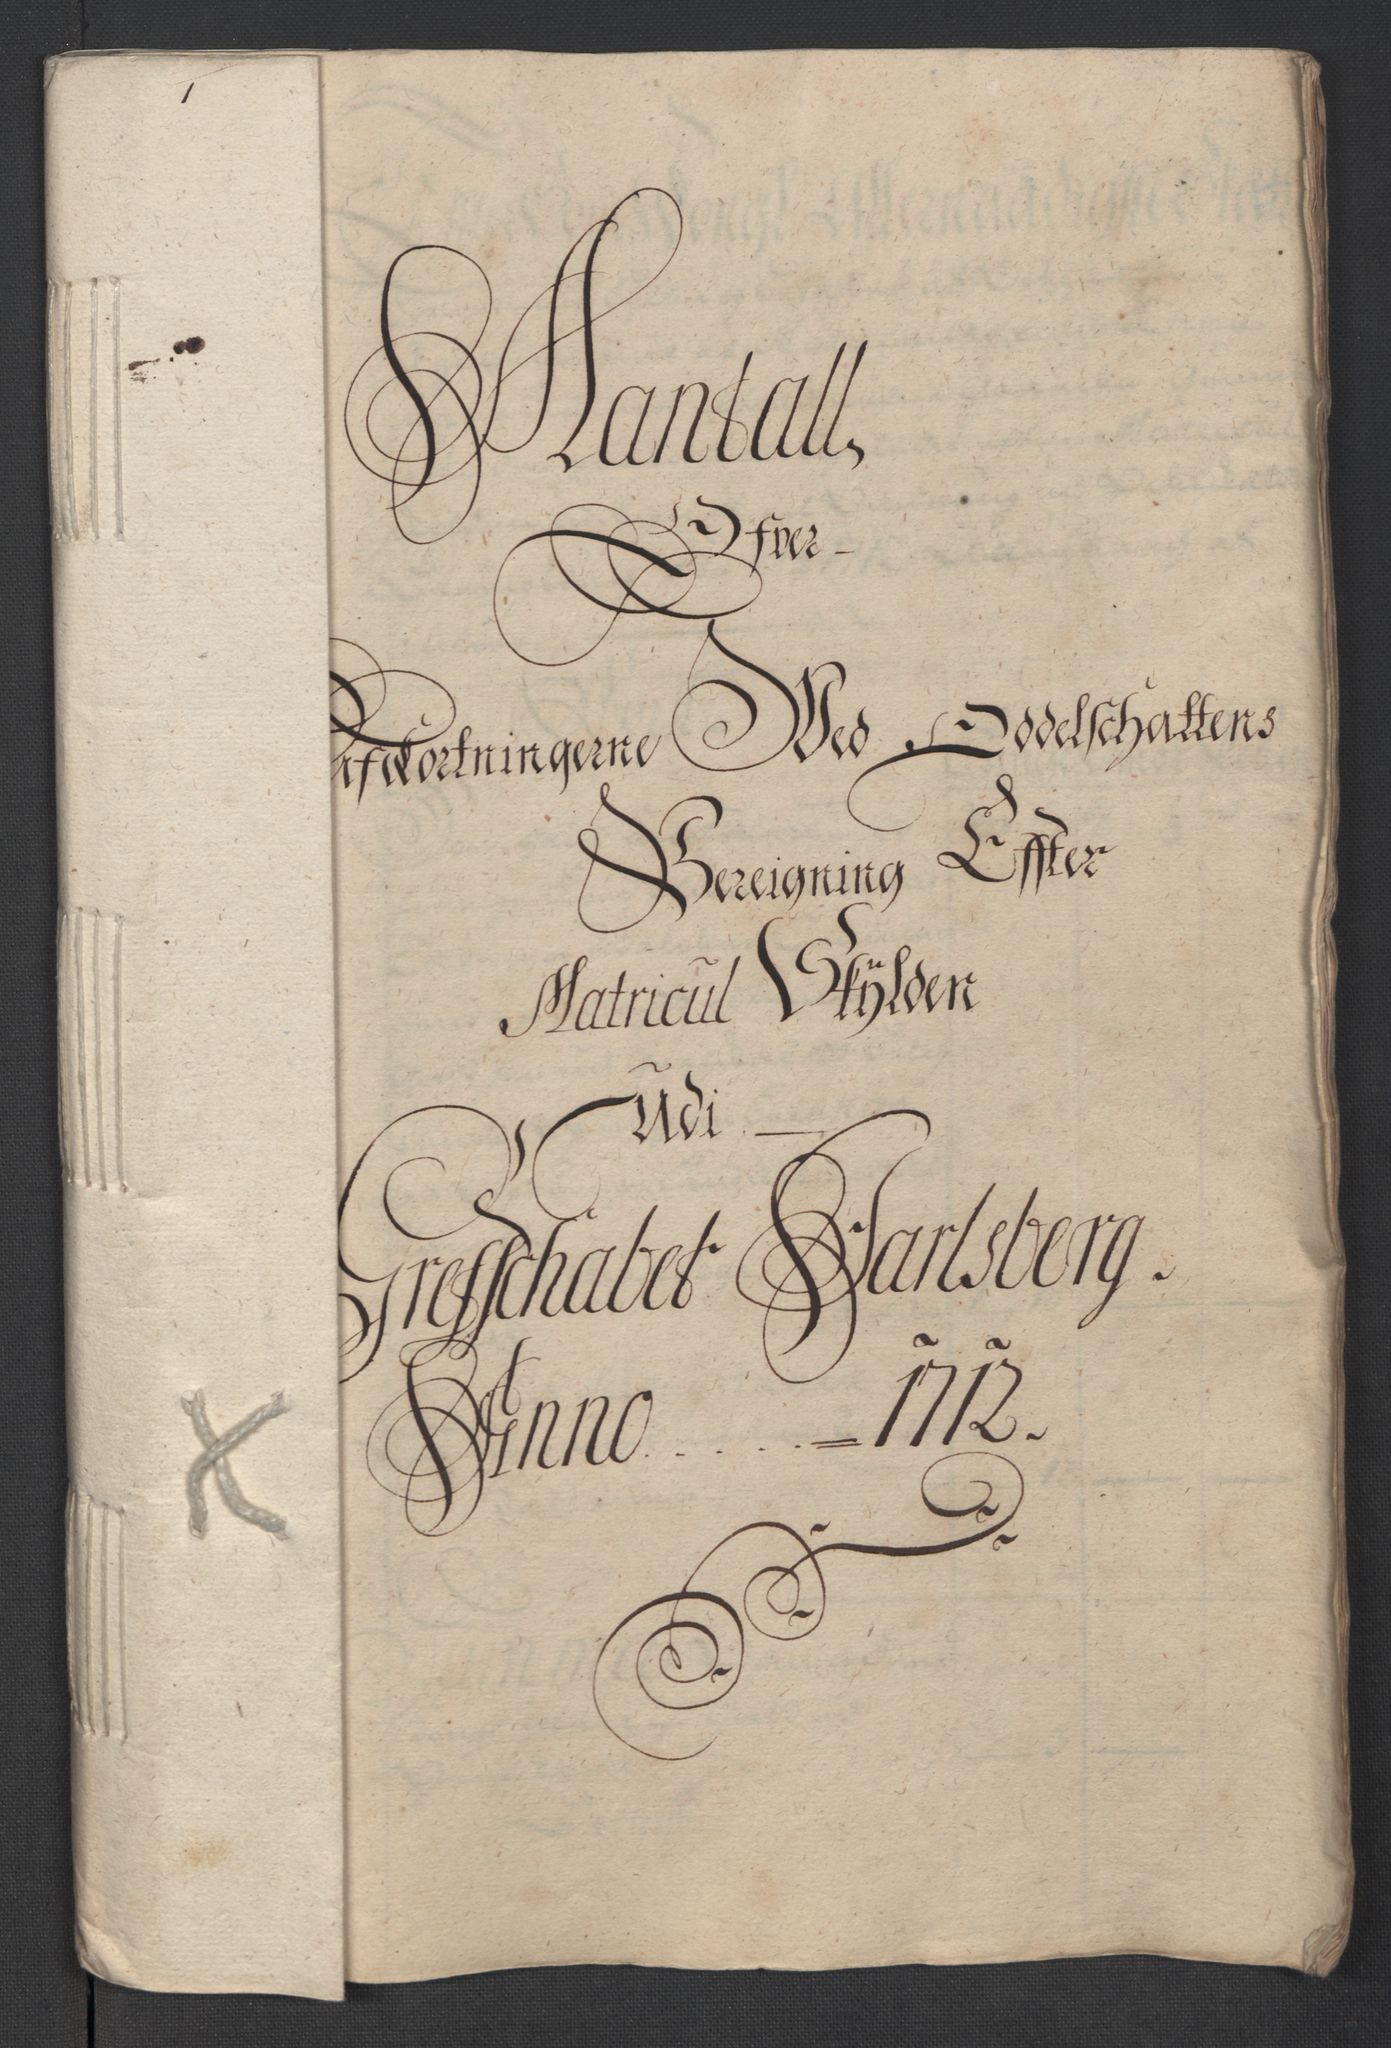 1
Mantall,
Ofver
Afkortningerne Wed Oddelschattens
Bereigning Effter
Matricul Skÿlden
Udi
Grefschabet Jarlsberg.
Anno .... = 1712.